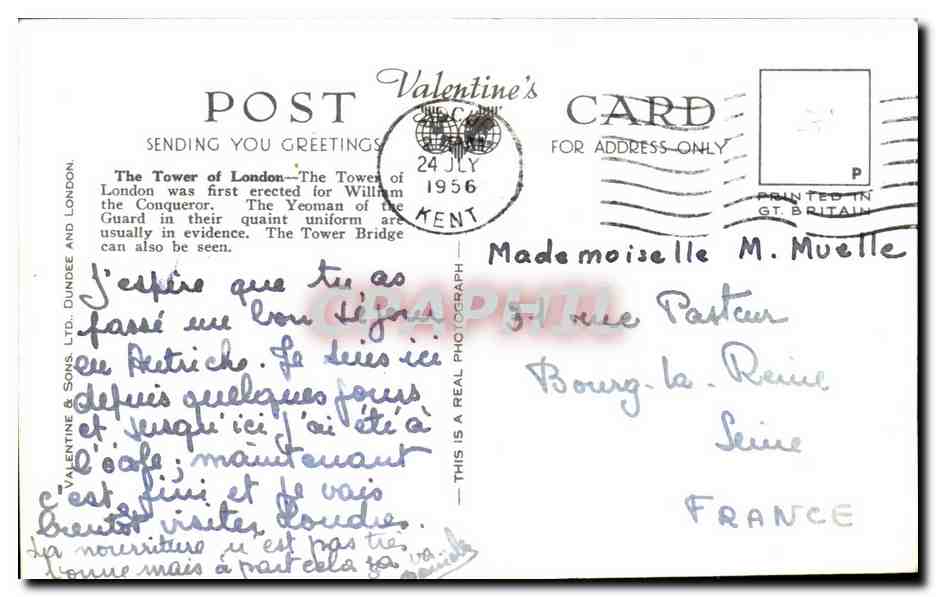 POST
Valentine's
CARD
SENDING YOU GREETINGS
FOR ADDRESS ONLY
24 JLY
1956
KENT
P
PRINTED IN
GT. BRITAIN
The Tower of London—The Tower of
London was first erected for William
the Conqueror. The Yeoman of the
Guard in their quaint uniform are
usually in evidence. The Tower Bridge
can also be seen.
VALENTINE & SONS. LTD., DUNDEE AND LONDON.
THIS IS A REAL PHOTOGRAPH
J'espère que tu as
passé un bon séjour
en Autriche. Je suis ici
depuis quelques jours
et jusqu'ici j'ai été à
maintenant
c'est fini et je vais
bientôt visiter Londres.
La nourriture n'est pas très
bonne mais à part cela ça
va
Mademoiselle M. Muelle
rue Pasteur
Bourg-la-Reine
Seine
FRANCE
CPAPHIL